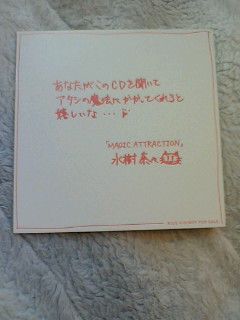 あなたがこのCDを聞いて
アタシの魔法にかかってくれると
嬉しいな・・・
『MAGIC ATTRACTION』
水樹奈々